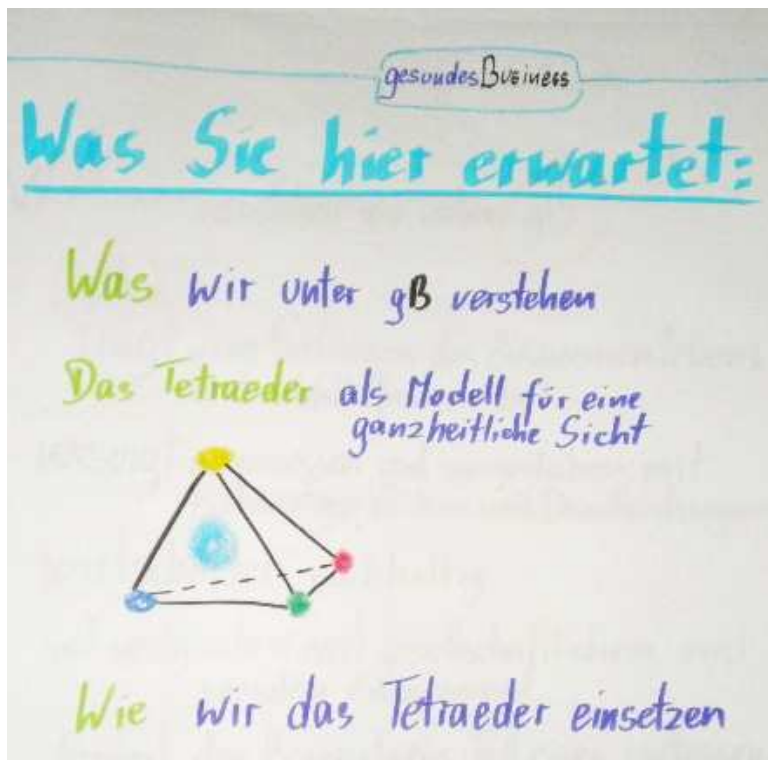 gesundesBusiness
Was Sie hier erwartet:
Was wir unter gB verstehen
Das Tetraeder als Modell für eine
ganzheitliche Sicht
Wie wir das Tetraeder einsetzen